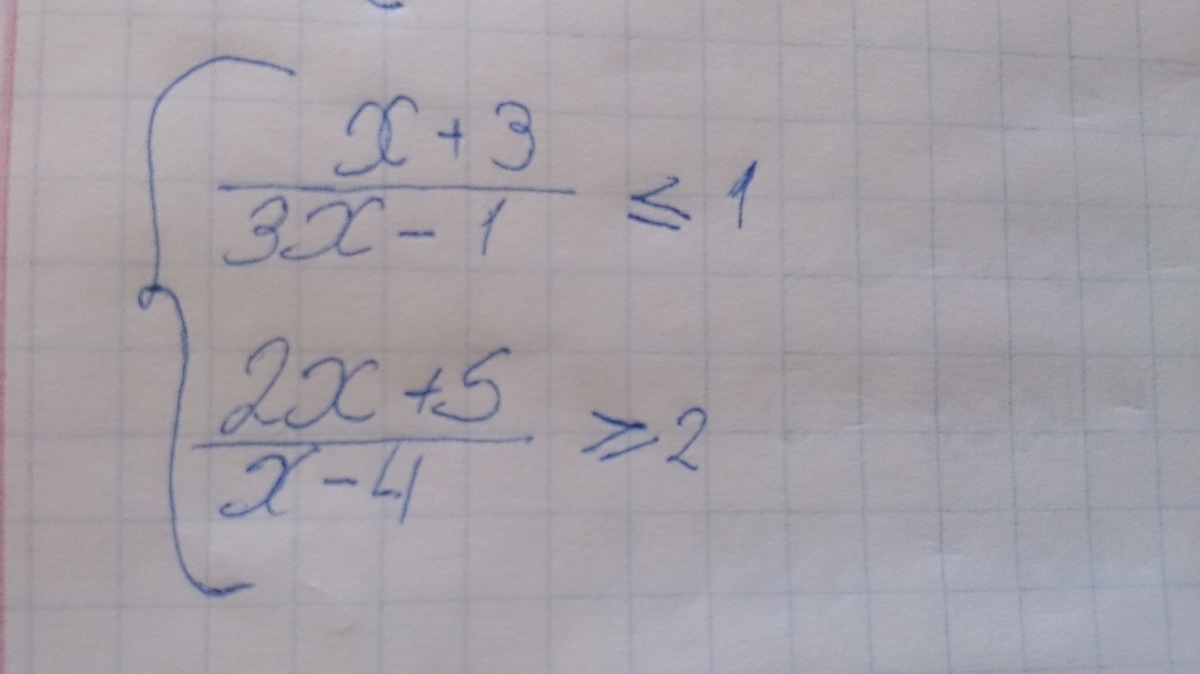 x + 3
3x - 1
≤ 1
2x + 5
x - 4
≥ 2